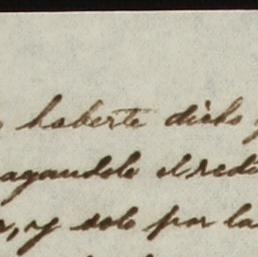 haberte dicho
agandole el redi
, y solo por la